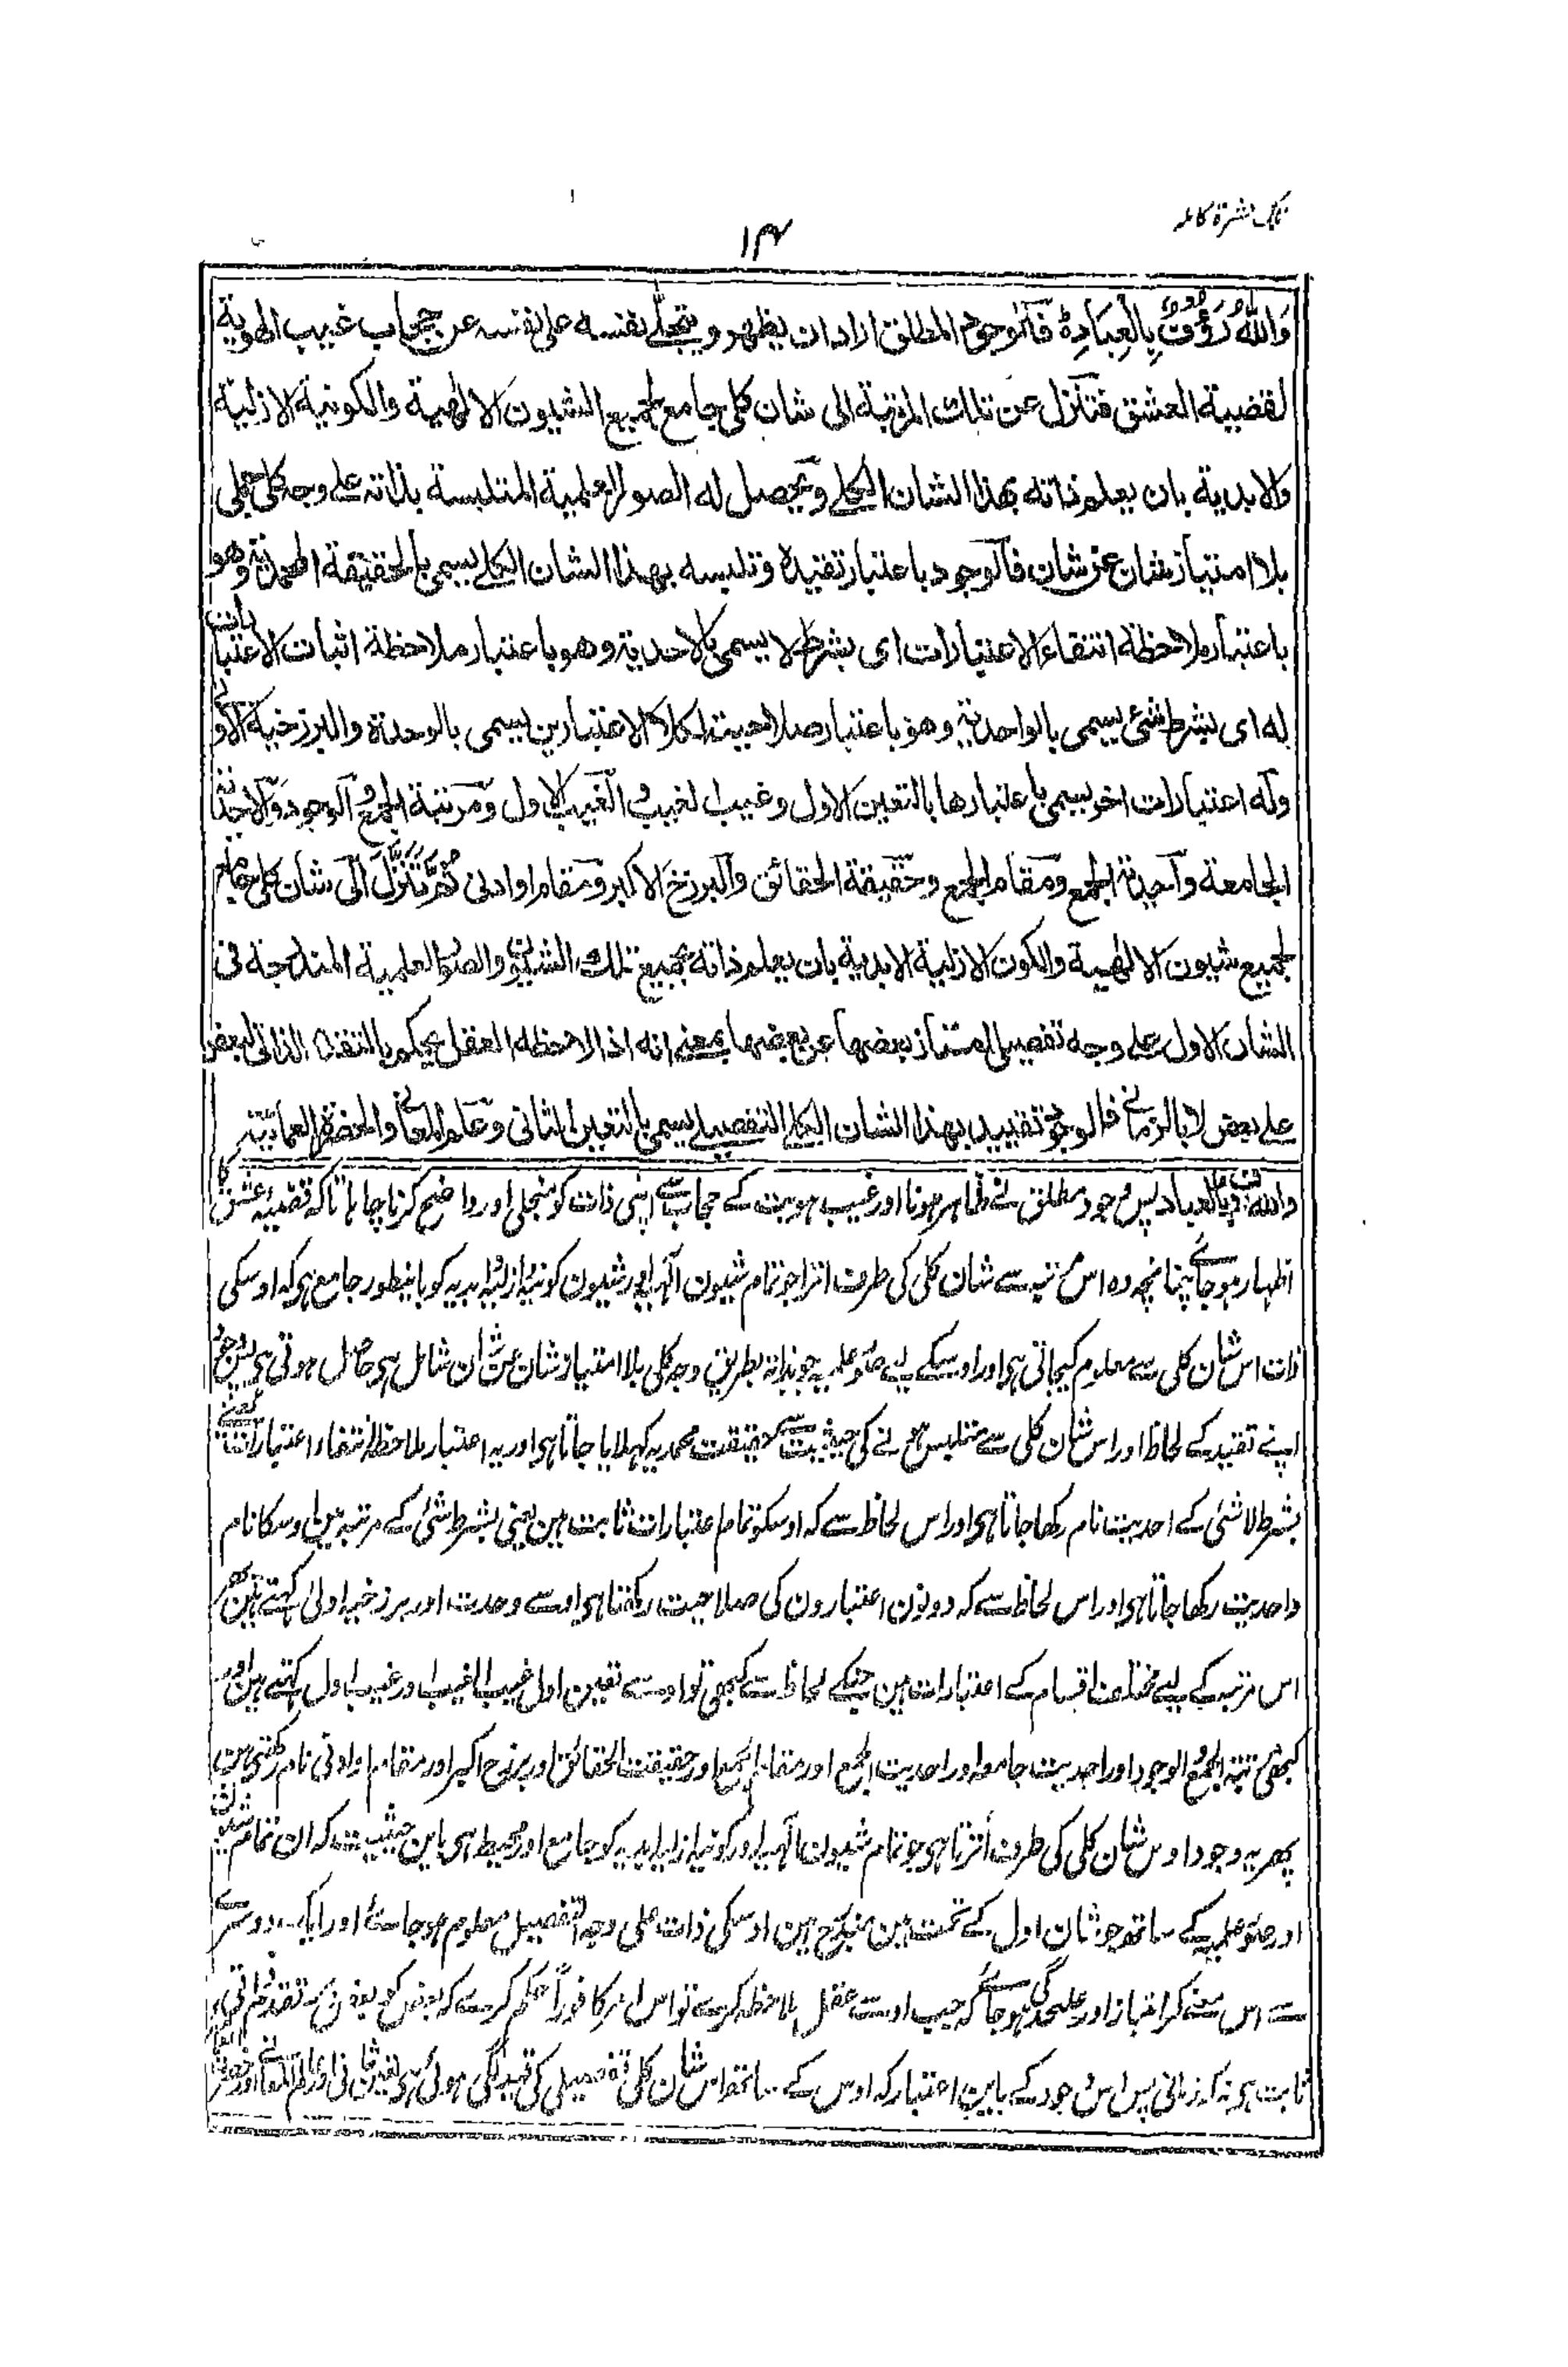 تلک عشرة کاملہ
۱۴
وَاللّٰهُ رَؤُفٌ بِالْعِبَادِ فالوجود المطلق اراد ان يظهر ويتجلى نفسه على نفسه عن حجاب غيب الهوية
لقضية العشق فتنزل عن تلك المرتبة الى شان كلى جامع لجميع الشيون الالٰهية والكونية الازلية
والابدية بان يعلم ذاته بهذا الشان الكلى وتحصل له الصور العلمية المتلبسة بذاته على وجه كلى جملى
بلا امتياز شان عن شان فالوجود باعتبار تقيده وتلبسه بهذا الشان الكلى يسمى بالحقيقة المحمدية وهو
باعتبار ملاحظة انتفاء الاعتبارات اى بشرط لا يسمى بالاحدية وهو باعتبار ملاحظة اثبات الاعتبارات
له اى بشرط شئ يسمى بالواحدية وهو باعتبار صلاحيته لكلا الاعتبارين يسمى بالوحدة والبرزخية الاولى
وله اعتبارات اخر يسمى باعتبارها بالتعين الاول وغيب الغيوب والغيب الاول ومرتبة الجمع والوجود والاحدية
الجامعة واحدية الجمع ومقام الجمع وحقيقة الحقائق والبرزخ الاكبر ومقام او ادنى ثُمَّ تَنَزَّلَ الى شان كلى جامع
لجميع شيون الالٰهية والكون الازلية الابدية بان يعلم ذاته بجميع تلك الشيون والصور العلمية المندرجة فى
الشان الاول على وجه تفصيلى ممتاز بعضها عن بعضها بمعنى انه اذا لاحظه العقل يحكم بالتقدم الذاتى لبعض
على بعض لا بالزمانى فالوجود بتقييده بهذا الشان الكلى التفصيلى يسمى بالتعين الثانى وعالم المعانى والحضرة العمائية
واللہ رؤف بالعباد پس وجود مطلق نے ظاہر ہونا اور غیب ہویت کے حجاب سے اپنی ذات کو متجلی اور واضح کرنا چاہا تاکہ قضیہ عشق کا
اظہار ہوجائے چنانچہ وہ اس مرتبہ سے شان کلی کی طرف اترا جو تمام شیون الٰہیہ اور شیون کونیہ ازلیہ ابدیہ کو باینطور جامع ہی کہ اوسکی
ذات اس شان کلی سے معلوم کیجاتی ہی اور اوسکے لیے صور علمیہ جو بذاتہ بطریق وجہ کلی بلا امتیاز شان عن شان شامل ہی حاصل ہوتی ہی پس وجود
اپنے تقید کے لحاظ اور اس شان کلی سے متلبس ہونے کی حیثیت سے حقیقت محمدیہ کہلایا جاتا ہی اور یہ اعتبار ملاحظہ انتفاء اعتبارات یعنے
بشرط لاشئی کے احدیت نام رکھا جاتا ہی اور اس لحاظ سے کہ اوسکو تمام اعتبارات ثابت ہین یعنی بشرط شئی کے مرتبہ مین اوسکا نام
واحدیت رکھا جاتا ہی اور اس لحاظ سے کہ دونون اعتبارون کی صلاحیت رکھتا ہی اوسے وحدت اور برزخیہ اولی کہتے ہین پھر
اس مرتبہ کے لیے مختلف اقسام کے اعتبارات ہین جنکے لحاظ سے کبھی تو اوسے تعین اول غیب الغیب اور غیب اول کہتے ہین اور
کبھی مرتبہ الجمع والوجود اور احدیت جامعہ اور احدیت الجمع اور مقام الجمع اور حقیقت الحقائق اور برزخ اکبر اور مقام او ادنی نام رکھتے ہین
پھر یہ وجود اوس شان کلی کی طرف اُترتا ہی جو تمام شیون الٰہیہ اور کونیہ ازلیہ ابدیہ کو جامع اور محیط ہی باین حیثیت کہ ان تمام شیون
اور صور علمیہ کے ساتھ جو شان اول کے تحت مین مندرج ہین اوسکی ذات علی وجہ التفصیل معلوم ہوجائے اور ایک دوسرے
سے اس معنے کر امتیاز اور علیحدگی ہوجائے کہ جب اوسے عقل ملاحظہ کرے تو اس امر کا فوراً حکم کرے کہ بعض کو بعض پر تقدم ذاتی
ثابت ہی نہ کہ زمانی پس اس وجود کے باین اعتبار کہ اوس کے ساتھ اس شان کلی تفصیلی کی قید لگی ہوئی ہی تعین ثانی اور عالم المعانی اور حضرت